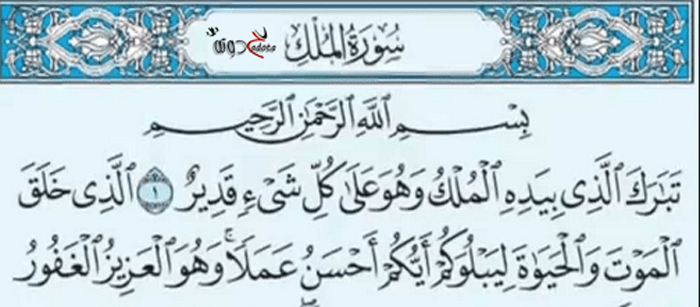 سُورَةُ الْمُلْكِ
بِسْمِ اللَّهِ الرَّحْمَٰنِ الرَّحِيمِ
تَبَارَكَ الَّذِي بِيَدِهِ الْمُلْكُ وَهُوَ عَلَىٰ كُلِّ شَيْءٍ قَدِيرٌ ١ الَّذِي خَلَقَ
الْمَوْتَ وَالْحَيَوٰةَ لِيَبْلُوَكُمْ أَيُّكُمْ أَحْسَنُ عَمَلًا ۚ وَهُوَ الْعَزِيزُ الْغَفُورُ